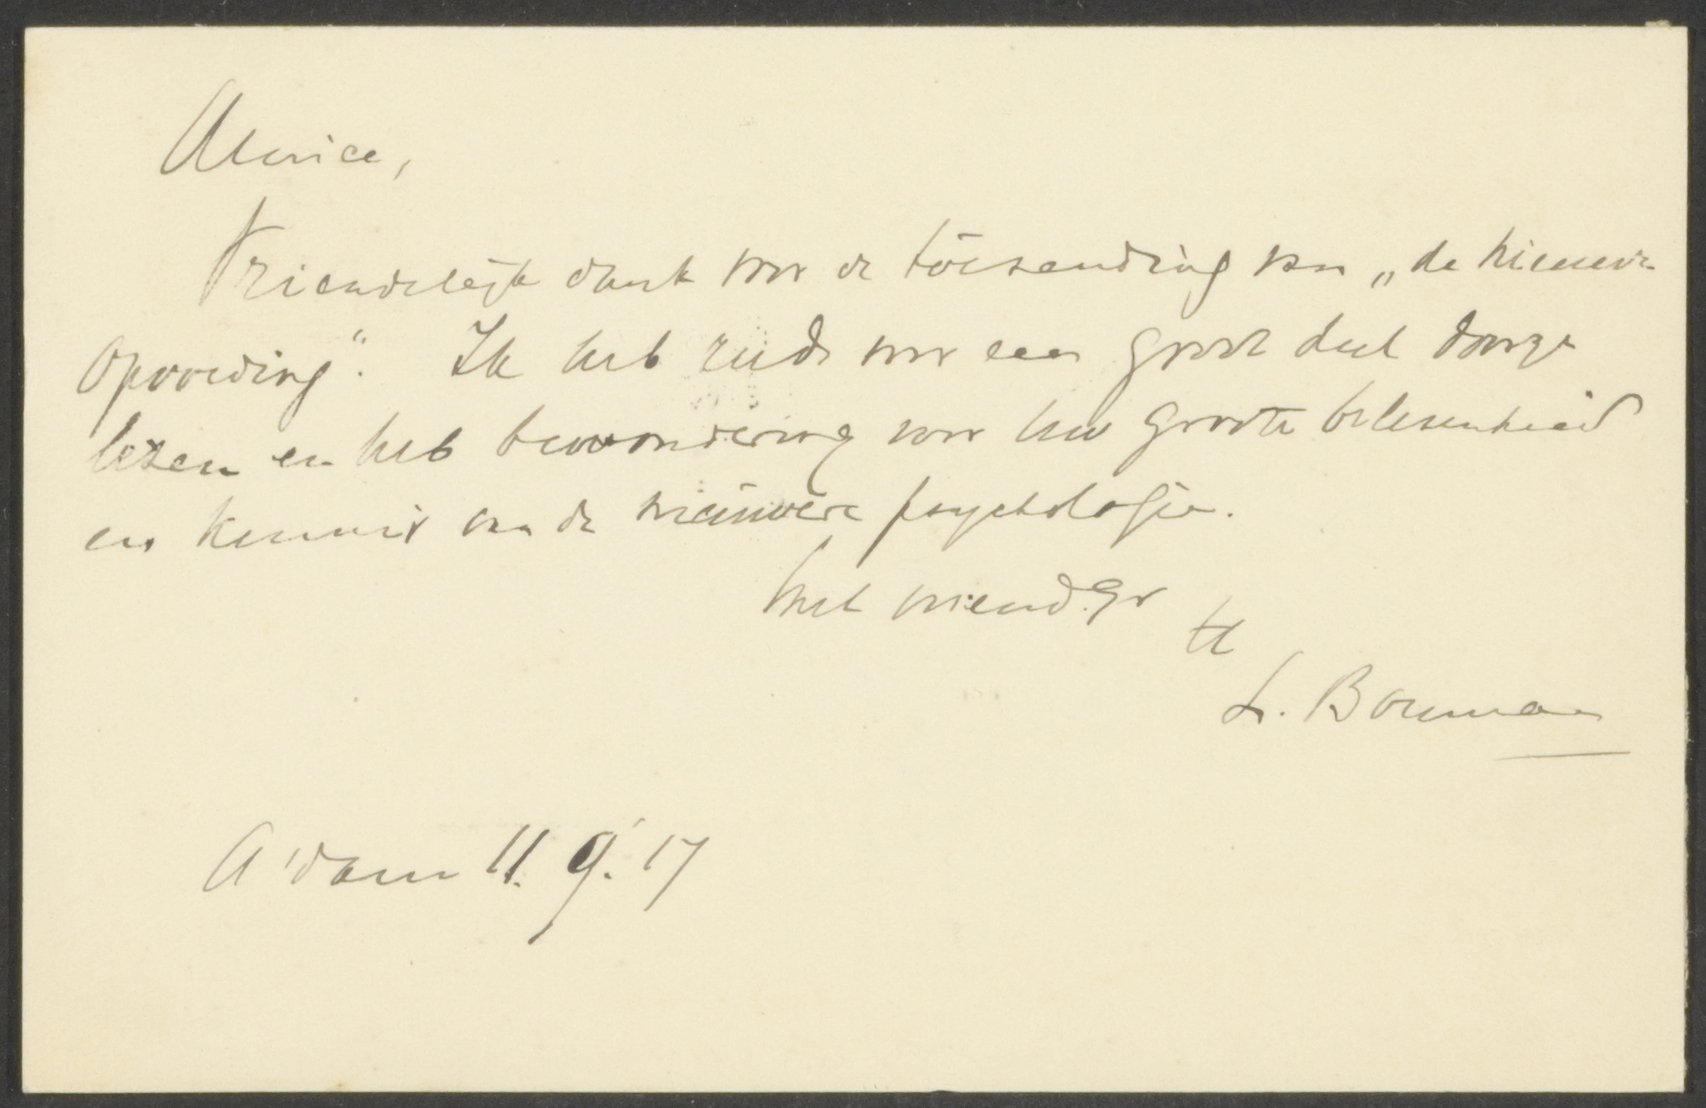 Amice,
Vriendelijk dank voor de toezending van „de nieuwe
opvoeding". Ik heb reeds voor een groot deel doorge
lezen en heb bewondering voor uw groote belezenheid
en kennis van de nieuwere psychologie.
Met vriend. gr
tt
L. Bouman
A'dam 11.9.17